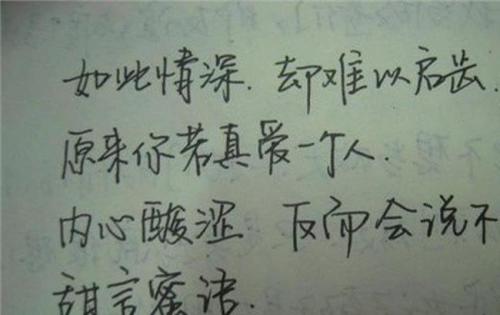 如此情深.却难以启齿.
原来你若真爱一个人.
内心酸涩 反而会说不
甜言蜜语.